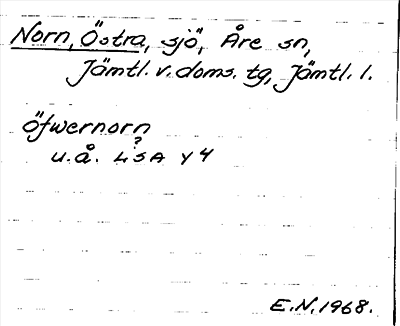 Norn, Östra, sjö, Åre sn,
Jämtl. v. doms. tg, Jämtl. l.
Öfwernorn
?
u.å. LSA Y4
E.N. 1968.